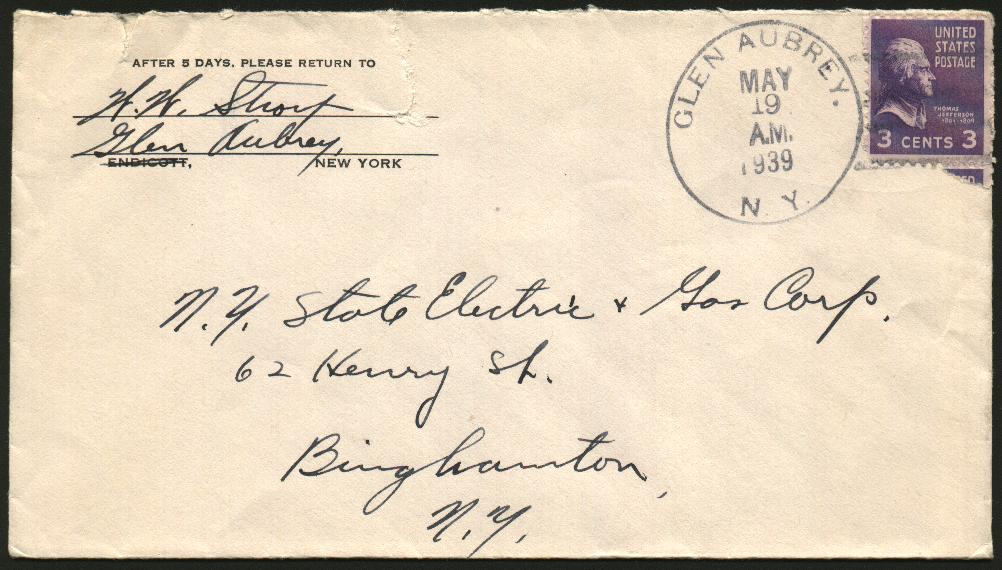 AFTER 5 DAYS, PLEASE RETURN TO
W. W.
Glen Aubrey,
ENDICOTT, NEW YORK
GLEN AUBREY.
MAY
19
A.M.
1939
N. Y.
UNITED
STATES
POSTAGE
THOMAS
JEFFERSON
1801-1809
3 CENTS 3
N.Y. State Electric & Gas Corp.
62 Henry St.
Binghamton,
N.Y.